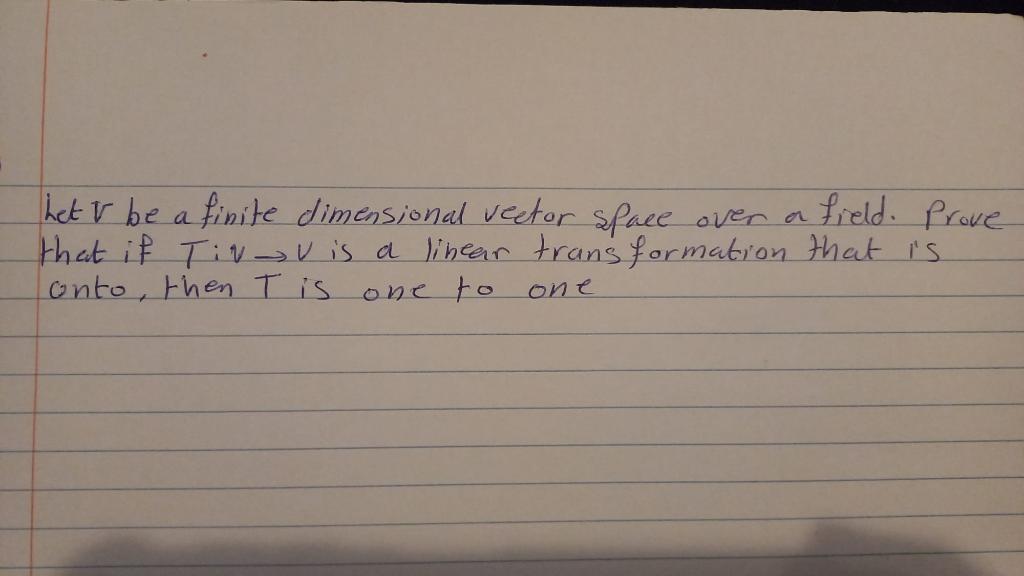 Let V be a finite dimensional vector space over a field. Prove
that if T: V → V is a linear transformation that is
onto, then T is one to one